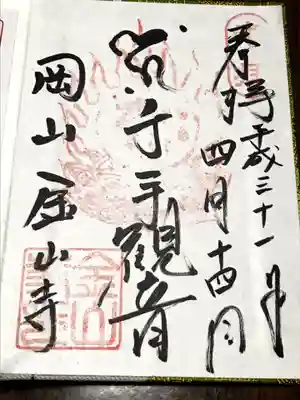 奉拝
平成三十一年
四月十四日
千手観音
岡山金山寺